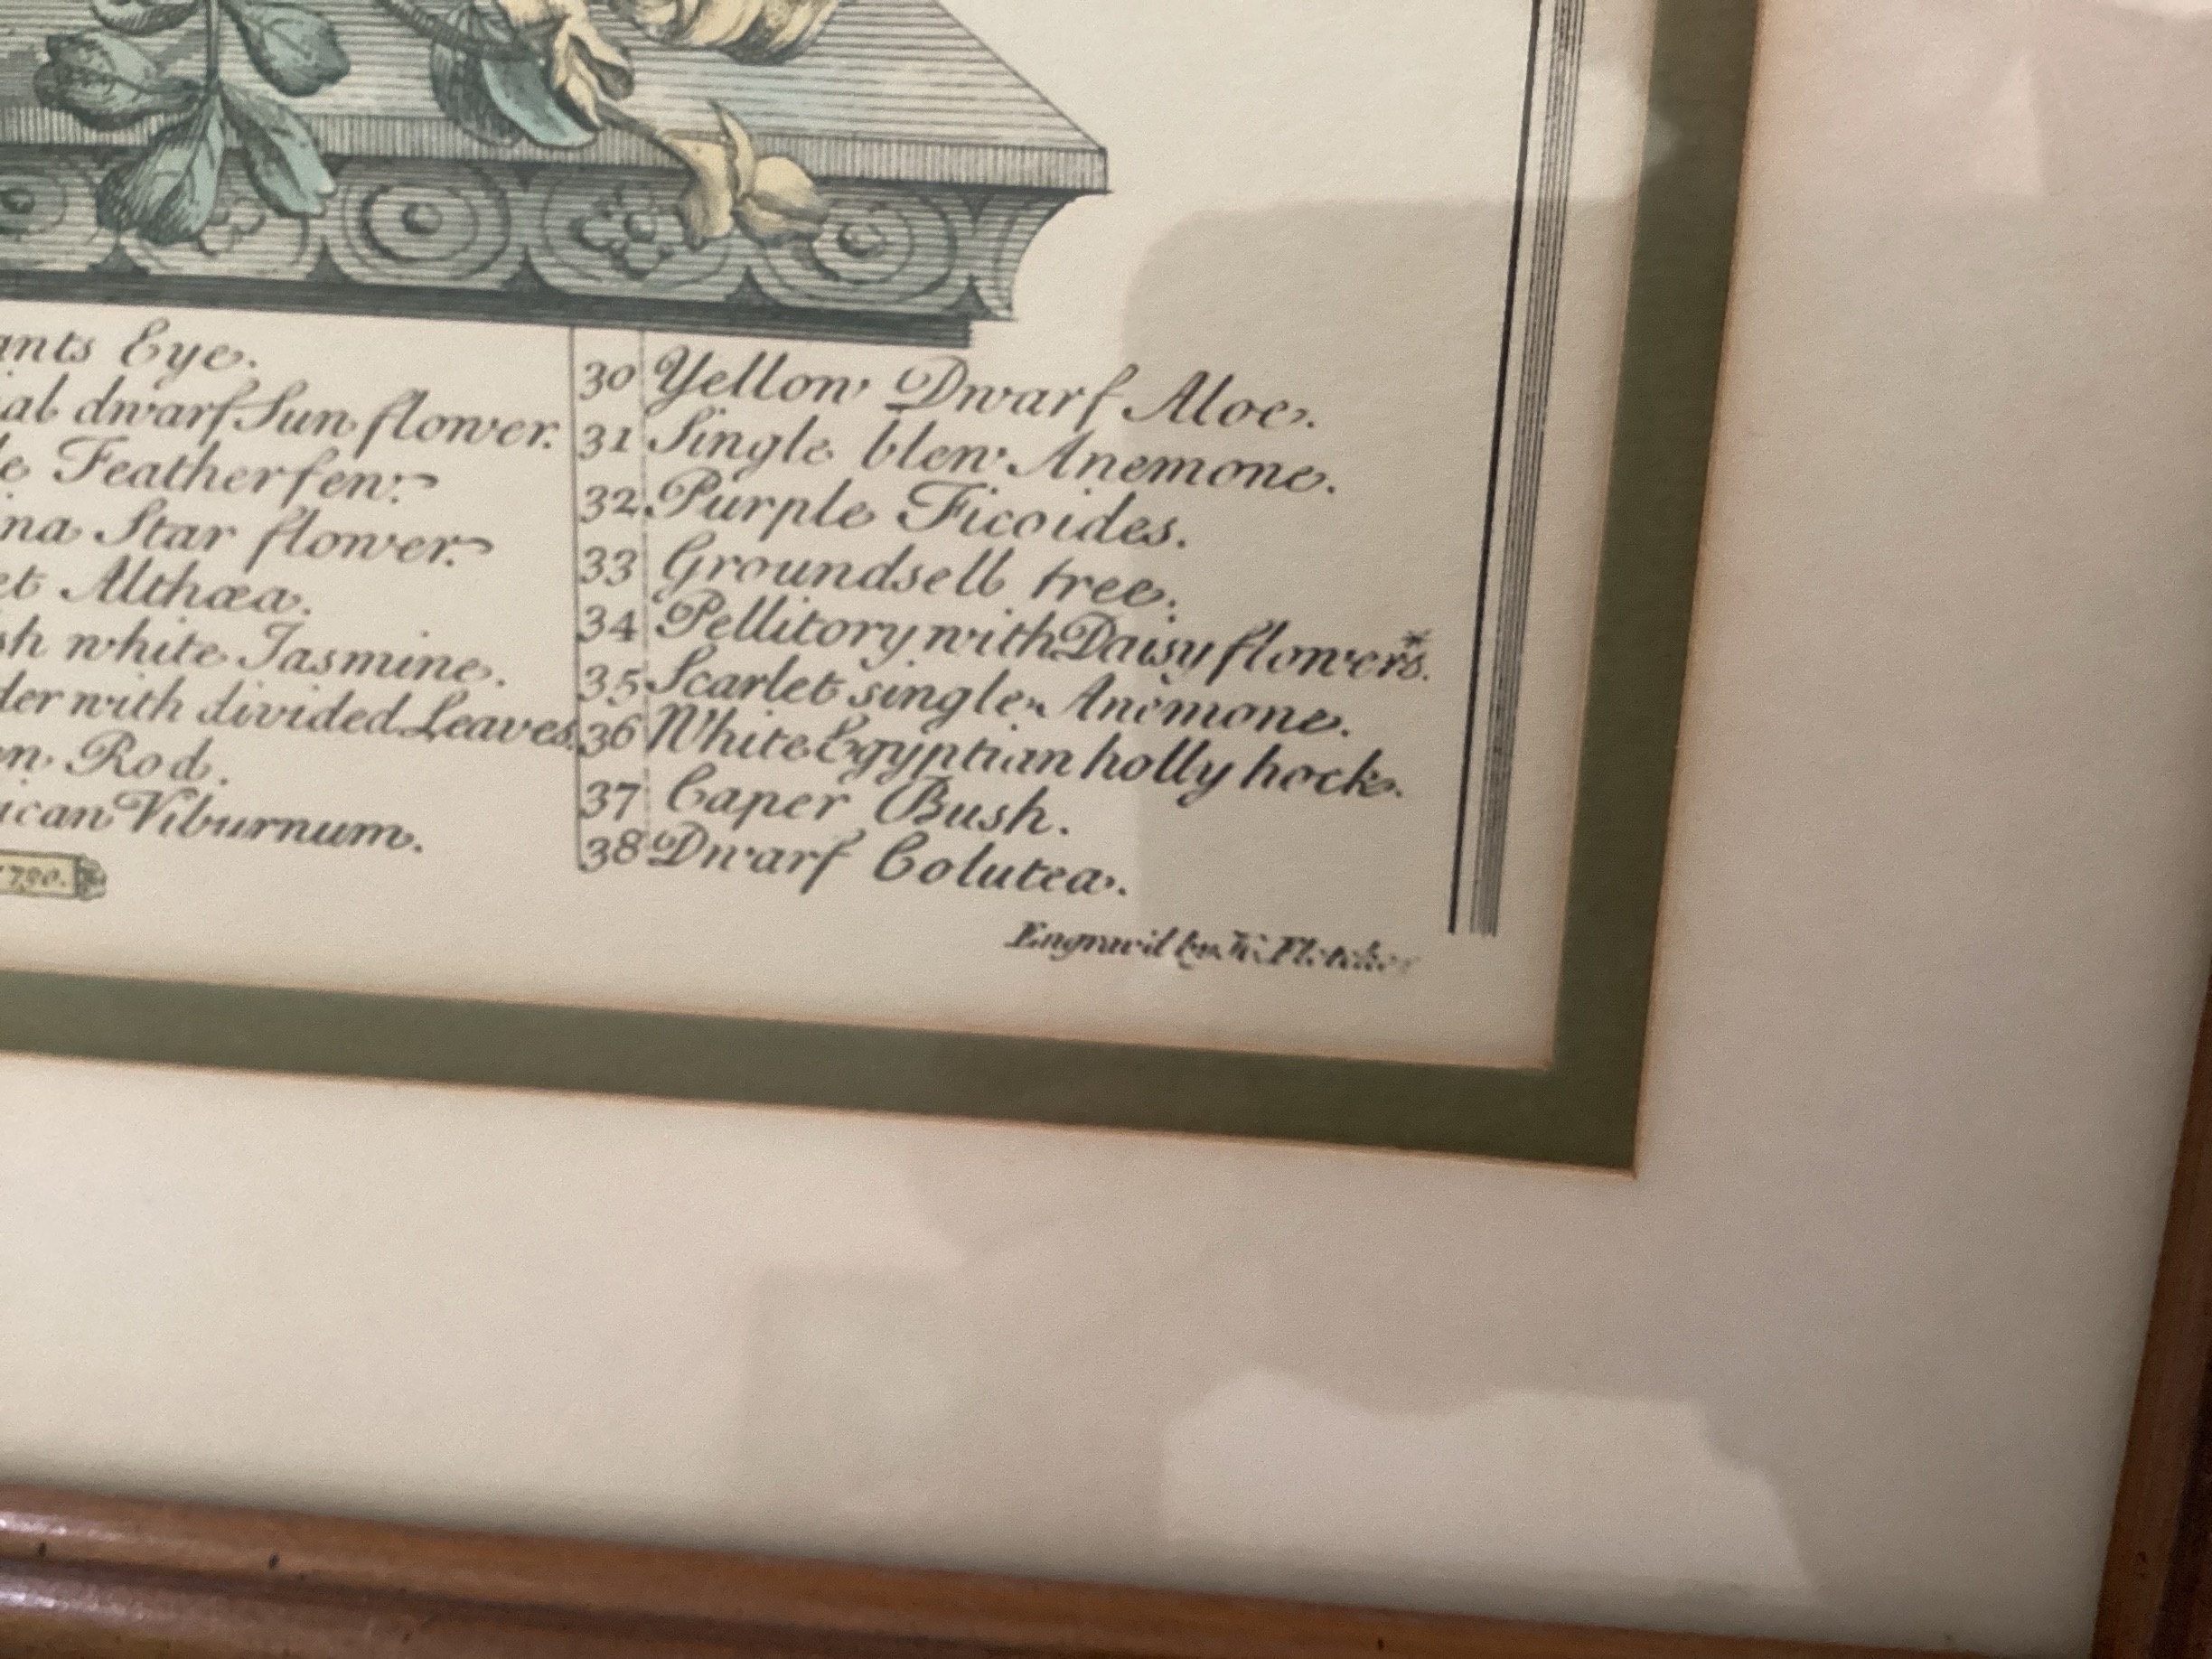 Eye.
dwarf Sun flower.
Featherfew.
Star flower.
Althæa.
white Iasmine.
with divided Leaves.
Rod.
Viburnum.
30 Yellow Dwarf Aloe.
31 Single blew Anemone.
32 Purple Ficoides.
33 Groundsell tree.
34 Pellitory with Daisy flowers.
35 Scarlet single Anemone.
36 White Egyptian holly hock.
37 Caper Bush.
38 Dwarf Colutea.
Fletcher